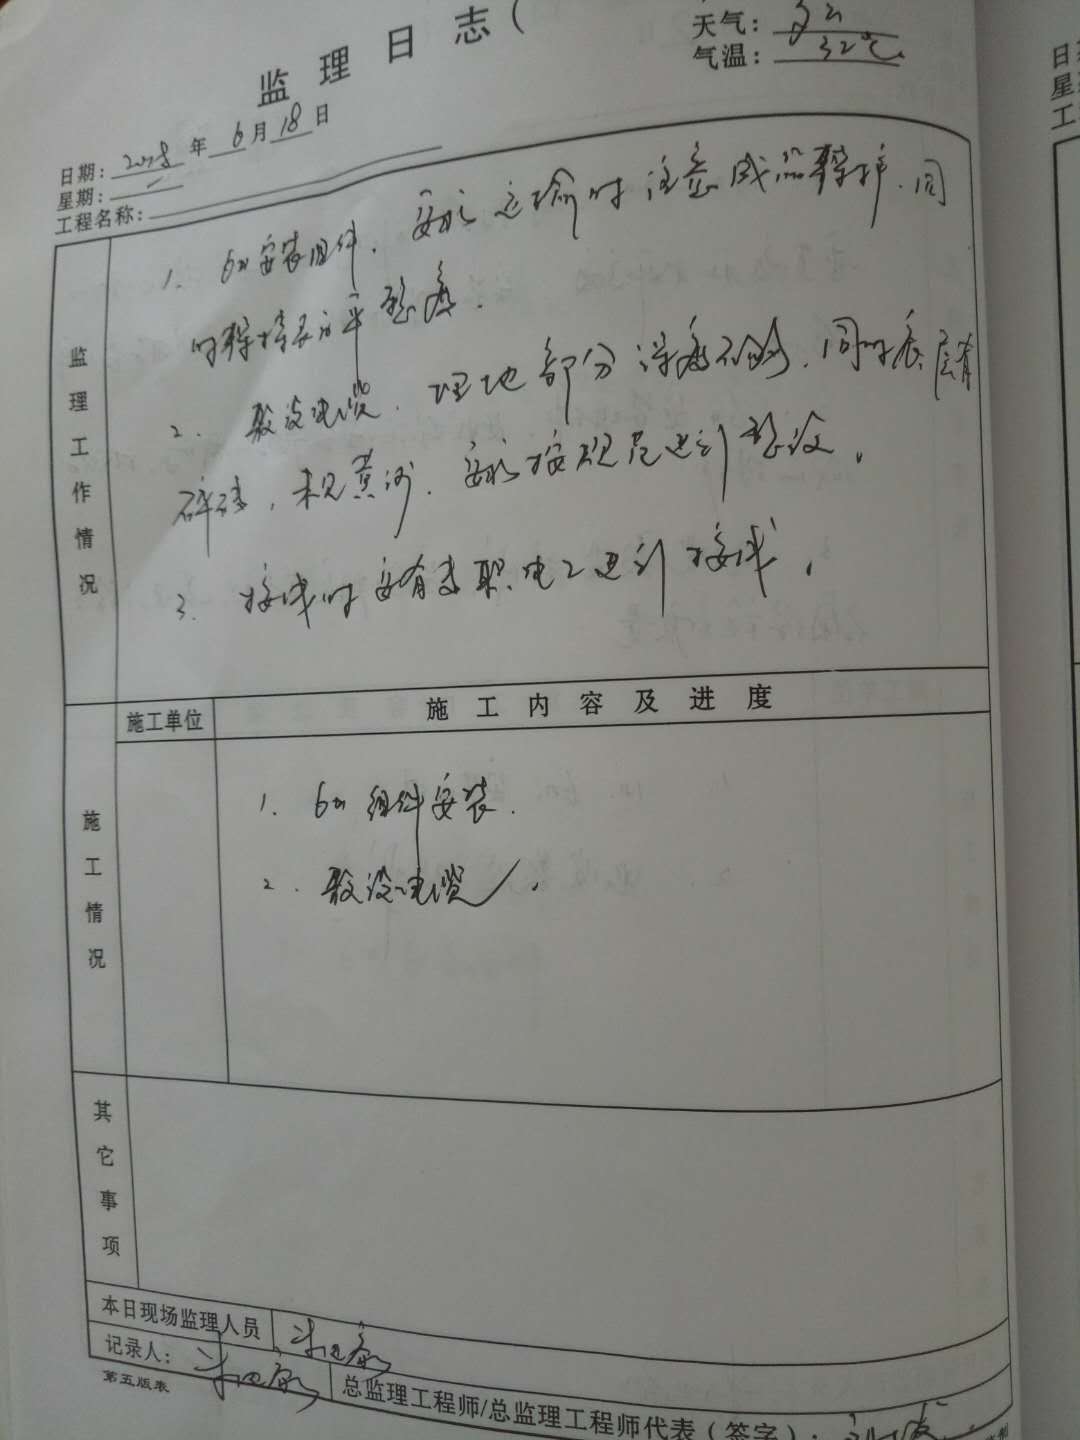 监理日志(
天气：多云
气温：32℃
日期：2018年6月18日
星期：
工程名称：
监理工作情况
1. 6#安装组件，要求运输时注意成品保护，同
时保持表面平整度.
2. 敷设电缆，埋地部分深度不够，同时底层有
碎砖，未见黄沙，要求按规范进行整改。
3. 接线时要有专职电工进行接线。
施工情况
施工单位
施工内容及进度
1. 6#组件安装.
2. 敷设电缆.
其它事项
本日现场监理人员
记录人：
总监理工程师/总监理工程师代表(签字)：
第五版表